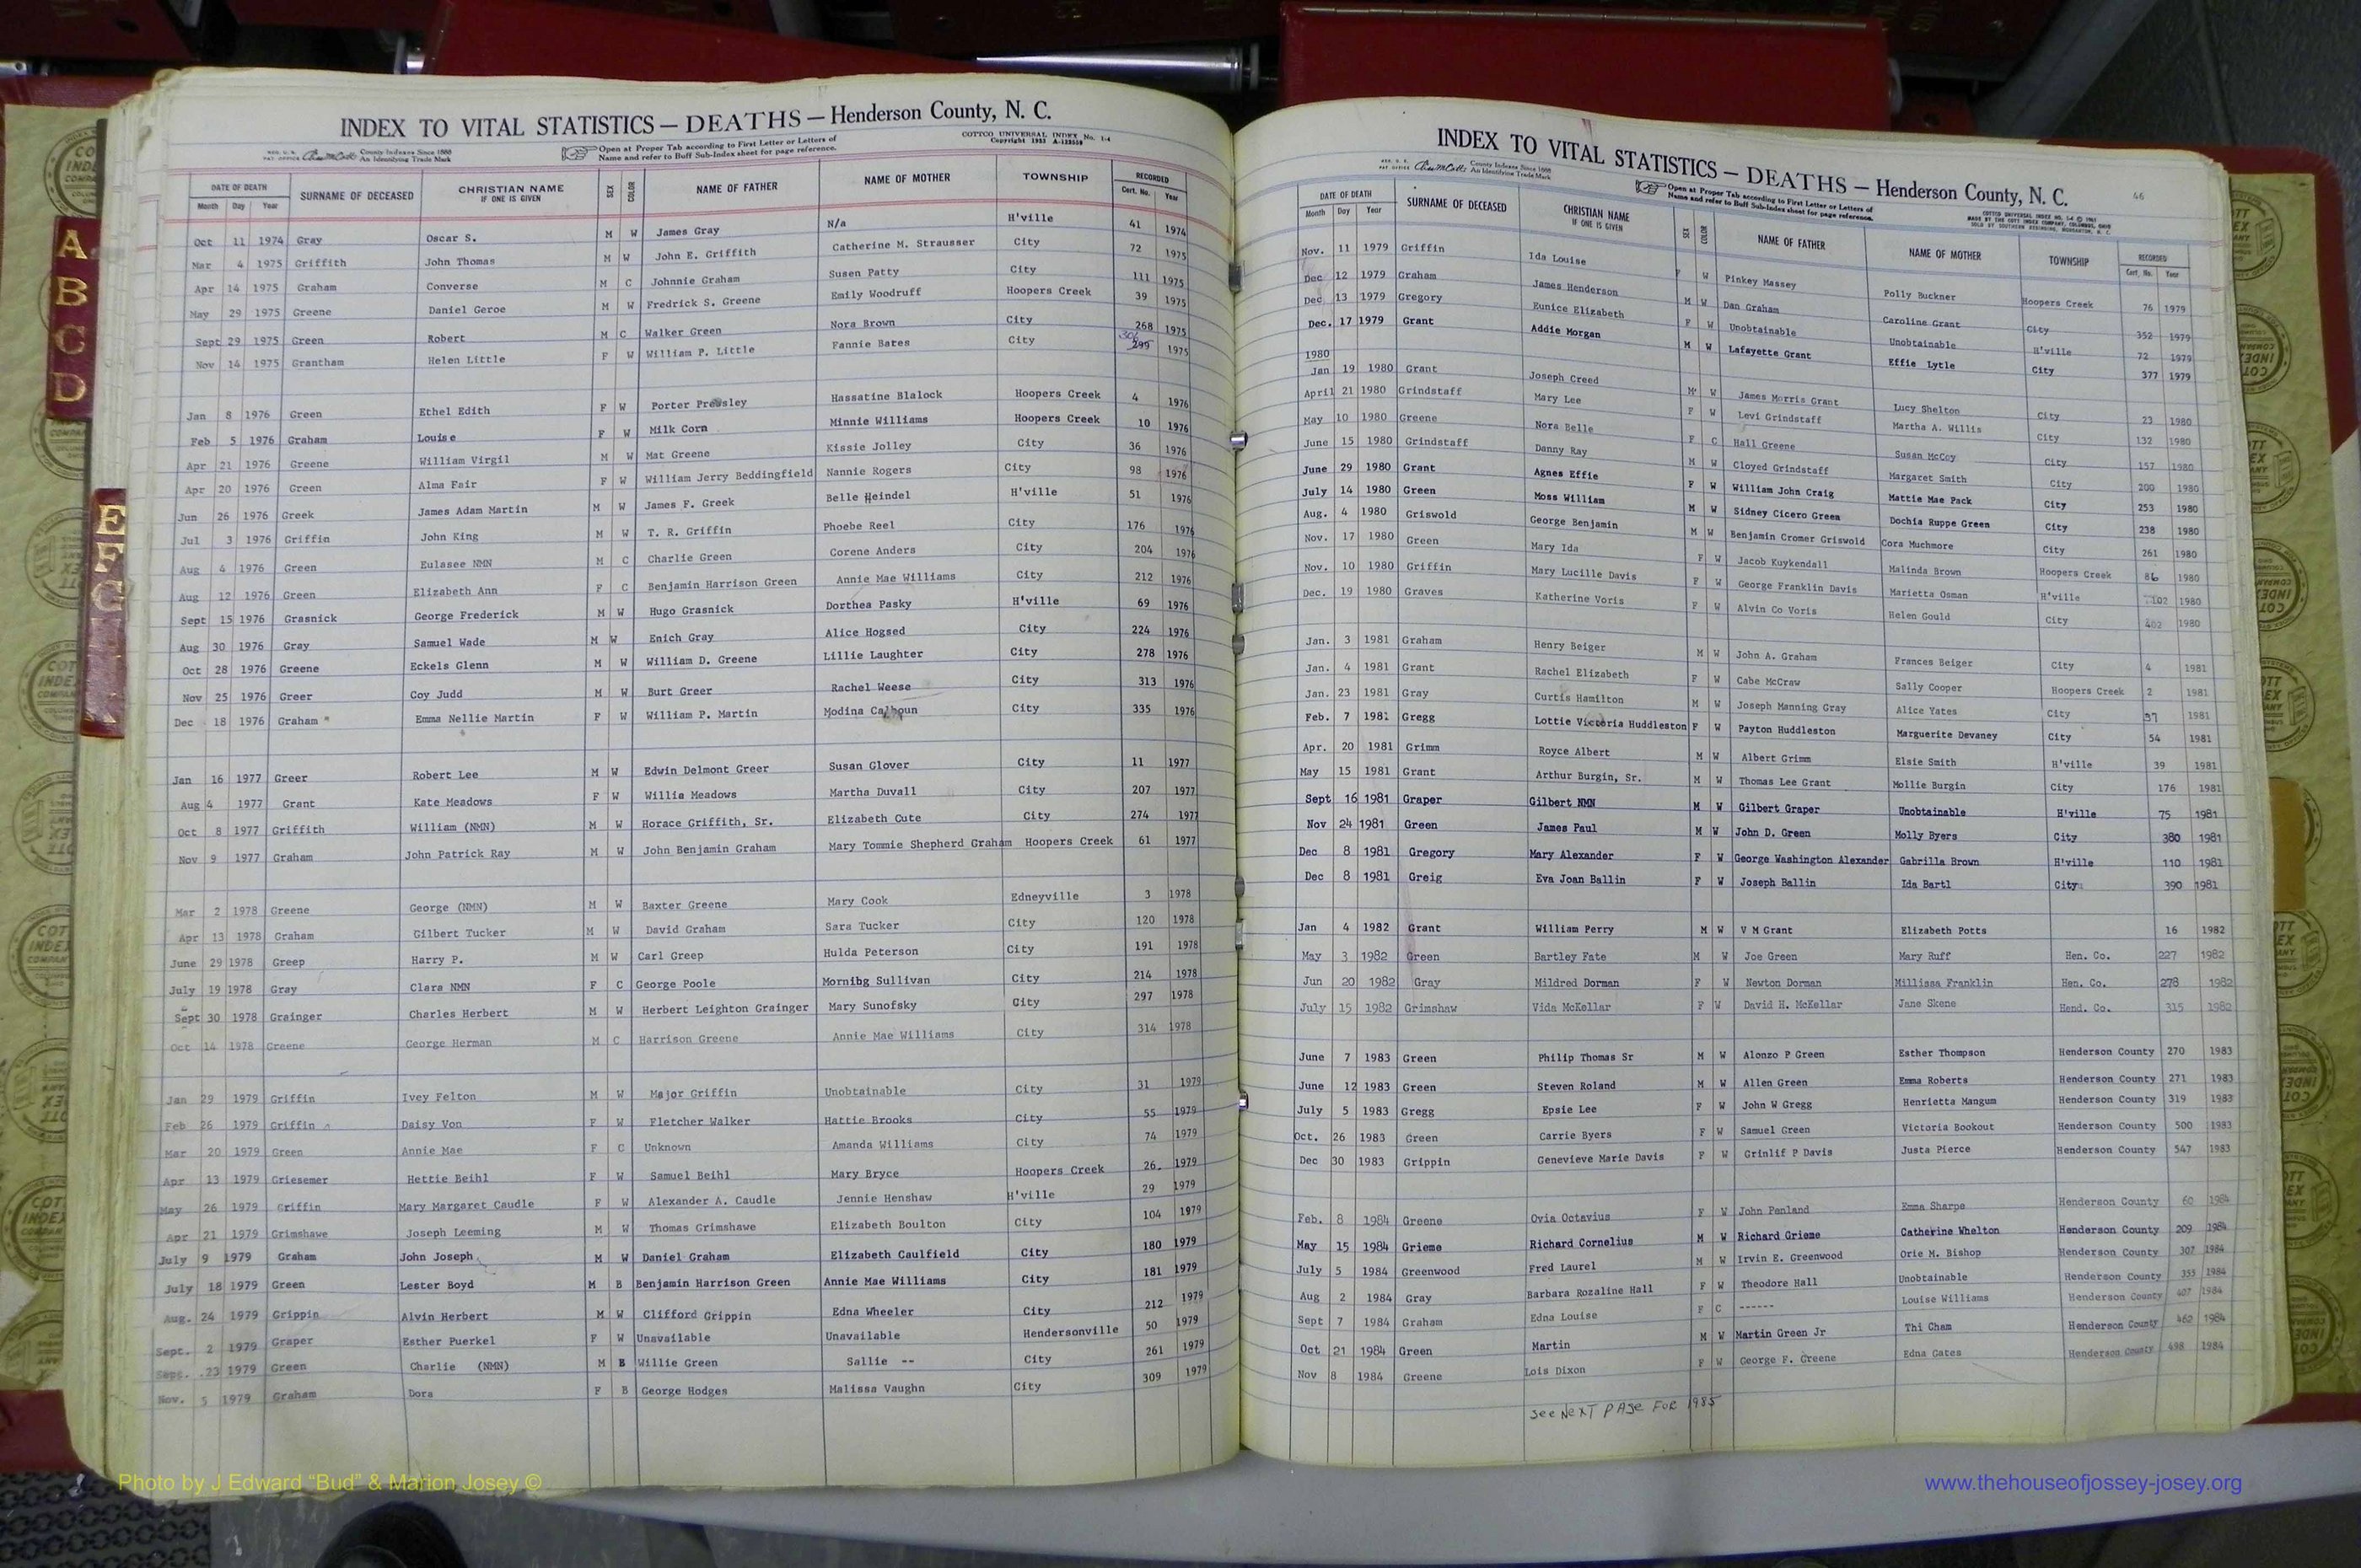 INDEX TO VITAL STATISTICS — DEATHS — Henderson County, N. C.
County Indexes Since 1888
An Identifying Trade Mark
Open at Proper Tab according to First Letter or Letters of
Name and refer to Buff Sub-Index sheet for page reference.
COTTCO UNIVERSAL INDEX No. 1-4
DATE OF DEATH SURNAME OF DECEASED CHRISTIAN NAME IF ONE IS GIVEN SEX COLOR NAME OF FATHER NAME OF MOTHER TOWNSHIP RECORDED
Month Day Year Cert. No. Year
Oct 11 1974 Gray Oscar S. M W James Gray N/a H'ville 41 1974
Mar 4 1975 Griffith John Thomas M W John E. Griffith Catherine M. Strausser City 72 1975
Apr 14 1975 Graham Converse M C Johnnie Graham Susen Patty City 111 1975
May 29 1975 Greene Daniel Geroe M W Fredrick S. Greene Emily Woodruff Hoopers Creek 39 1975
Sept 29 1975 Green Robert M C Walker Green Nora Brown City 268 1975
Nov 14 1975 Grantham Helen Little F W William P. Little Fannie Bates City 1975
Jan 8 1976 Green Ethel Edith F W Porter Pressley Hassatine Blalock Hoopers Creek 4 1976
Feb 5 1976 Graham Louise F W Milk Corn Minnie Williams Hoopers Creek 10 1976
Apr 21 1976 Greene William Virgil M W Mat Greene Kissie Jolley City 36 1976
Apr 20 1976 Green Alma Fair F W William Jerry Beddingfield Nannie Rogers City 98 1976
Jun 26 1976 Greek James Adam Martin M W James F. Greek Belle Heindel H'ville 51 1976
Jul 3 1976 Griffin John King M W T. R. Griffin Phoebe Reel City 176 1976
Aug 4 1976 Green Eulasee NMN M C Charlie Green Corene Anders City 204 1976
Aug 12 1976 Green Elizabeth Ann F C Benjamin Harrison Green Annie Mae Williams City 212 1976
Sept 15 1976 Grasnick George Frederick M W Hugo Grasnick Dorthea Pasky H'ville 69 1976
Aug 30 1976 Gray Samuel Wade M W Enich Gray Alice Hogsed City 224 1976
Oct 28 1976 Greene Eckels Glenn M W William D. Greene Lillie Laughter City 278 1976
Nov 25 1976 Greer Coy Judd M W Burt Greer Rachel Weese City 313 1976
Dec 18 1976 Graham Emma Nellie Martin F W William P. Martin Modina Calhoun City 335 1976
Jan 16 1977 Greer Robert Lee M W Edwin Delmont Greer Susan Glover City 11 1977
Aug 4 1977 Grant Kate Meadows F W Willie Meadows Martha Duvall City 207 1977
Oct 8 1977 Griffith William (NMN) M W Horace Griffith, Sr. Elizabeth Cute City 274 1977
Nov 9 1977 Graham John Patrick Ray M W John Benjamin Graham Mary Tommie Shepherd Graham Hoopers Creek 61 1977
Mar 2 1978 Greene George (NMN) M W Baxter Greene Mary Cook Edneyville 3 1978
Apr 13 1978 Graham Gilbert Tucker M W David Graham Sara Tucker City 120 1978
June 29 1978 Greep Harry P. M W Carl Greep Hulda Peterson City 191 1978
July 19 1978 Gray Clara NMN F C George Poole Mornibg Sullivan City 214 1978
Sept 30 1978 Grainger Charles Herbert M W Herbert Leighton Grainger Mary Sunofsky City 297 1978
Oct 14 1978 Greene George Herman M C Harrison Greene Annie Mae Williams City 314 1978
Jan 29 1979 Griffin Ivey Felton M W Major Griffin Unobtainable City 31 1979
Feb 26 1979 Griffin Daisy Von F W Fletcher Walker Hattie Brooks City 55 1979
Mar 20 1979 Green Annie Mae F C Unknown Amanda Williams City 74 1979
Apr 13 1979 Griesemer Hettie Beihl F W Samuel Beihl Mary Bryce Hoopers Creek 26 1979
May 26 1979 Griffin Mary Margaret Caudle F W Alexander A. Caudle Jennie Henshaw H'ville 29 1979
Apr 21 1979 Grimshawe Joseph Leeming M W Thomas Grimshawe Elizabeth Boulton City 104 1979
July 9 1979 Graham John Joseph M W Daniel Graham Elizabeth Caulfield City 180 1979
July 18 1979 Green Lester Boyd M B Benjamin Harrison Green Annie Mae Williams City 181 1979
Aug. 24 1979 Grippin Alvin Herbert M W Clifford Grippin Edna Wheeler City 212 1979
Sept. 2 1979 Graper Esther Puerkel F W Unavailable Unavailable Hendersonville 50 1979
Sept. 23 1979 Green Charlie (NMN) M B Willie Green Sallie -- City 261 1979
Nov. 5 1979 Graham Dora F B George Hodges Malissa Vaughn City 309 1979
INDEX TO VITAL STATISTICS — DEATHS — Henderson County, N. C.
46
County Indexes Since 1888
An Identifying Trade Mark
Open at Proper Tab according to First Letter or Letters of
Name and refer to Buff Sub-Index sheet for page reference.
DATE OF DEATH SURNAME OF DECEASED CHRISTIAN NAME IF ONE IS GIVEN SEX COLOR NAME OF FATHER NAME OF MOTHER TOWNSHIP RECORDED
Month Day Year Cert. No. Year
Nov. 11 1979 Griffin Ida Louise F W Pinkey Massey Polly Buckner Hoopers Creek 76 1979
Dec 12 1979 Graham James Henderson M W Dan Graham Caroline Grant City 352 1979
Dec 13 1979 Gregory Eunice Elizabeth F W Unobtainable Unobtainable H'ville 72 1979
Dec. 17 1979 Grant Addie Morgan M W Lafayette Grant Effie Lytle City 377 1979
1980
Jan 19 1980 Grant Joseph Creed M W James Morris Grant Lucy Shelton City 23 1980
April 21 1980 Grindstaff Mary Lee F W Levi Grindstaff Martha A. Willis City 132 1980
May 10 1980 Greene Nora Belle F C Hall Greene Susan McCoy City 157 1980
June 15 1980 Grindstaff Danny Ray M W Cloyed Grindstaff Margaret Smith City 200 1980
June 29 1980 Grant Agnes Effie F W William John Craig Mattie Mae Pack City 253 1980
July 14 1980 Green Moss William M W Sidney Cicero Green Dochia Ruppe Green City 238 1980
Aug. 4 1980 Griswold George Benjamin M W Benjamin Cromer Griswold Cora Muchmore City 261 1980
Nov. 17 1980 Green Mary Ida F W Jacob Kuykendall Malinda Brown Hoopers Creek 86 1980
Nov. 10 1980 Griffin Mary Lucille Davis F W George Franklin Davis Marietta Osman H'ville 102 1980
Dec. 19 1980 Graves Katherine Voris F W Alvin Co Voris Helen Gould City 1980
Jan. 3 1981 Graham Henry Beiger M W John A. Graham Frances Beiger City 4 1981
Jan. 4 1981 Grant Rachel Elizabeth F W Cabe McCraw Sally Cooper Hoopers Creek 2 1981
Jan. 23 1981 Gray Curtis Hamilton M W Joseph Manning Gray Alice Yates City 37 1981
Feb. 7 1981 Gregg Lottie Victoria Huddleston F W Payton Huddleston Marguerite Devaney City 54 1981
Apr. 20 1981 Grimm Royce Albert M W Albert Grimm Elsie Smith H'ville 39 1981
May 15 1981 Grant Arthur Burgin, Sr. M W Thomas Lee Grant Mollie Burgin City 176 1981
Sept 16 1981 Graper Gilbert NMN M W Gilbert Graper Unobtainable H'ville 75 1981
Nov 24 1981 Green James Paul M W John D. Green Molly Byers City 380 1981
Dec 8 1981 Gregory Mary Alexander F W George Washington Alexander Gabrilla Brown H'ville 110 1981
Dec 8 1981 Greig Eva Joan Ballin F W Joseph Ballin Ida Bartl City 390 1981
Jan 4 1982 Grant William Perry M W V M Grant Elizabeth Potts 16 1982
May 3 1982 Green Bartley Fate M W Joe Green Mary Ruff Hen. Co. 227 1982
Jun 20 1982 Gray Mildred Dorman F W Newton Dorman Millissa Franklin Hen. Co. 278 1982
July 15 1982 Grimshaw Vida McKellar F W David H. McKellar Jane Skene Hend. Co. 315 1982
June 7 1983 Green Philip Thomas Sr M W Alonzo P Green Esther Thompson Henderson County 270 1983
June 12 1983 Green Steven Roland M W Allen Green Emma Roberts Henderson County 271 1983
July 5 1983 Gregg Epsie Lee F W John W Gregg Henrietta Mangum Henderson County 319 1983
Oct. 26 1983 Green Carrie Byers F W Samuel Green Victoria Bookout Henderson County 500 1983
Dec 30 1983 Grippin Genevieve Marie Davis F W Grinlif P Davis Justa Pierce Henderson County 547 1983
Feb. 8 1984 Greene Ovia Octavius F W John Penland Emma Sharpe Henderson County 60 1984
May 15 1984 Grieme Richard Cornelius M W Richard Grieme Catherine Whelton Henderson County 209 1984
July 5 1984 Greenwood Fred Laurel M W Irvin E. Greenwood Orie M. Bishop Henderson County 307 1984
Aug 2 1984 Gray Barbara Rozaline Hall F W Theodore Hall Unobtainable Henderson County 353 1984
Sept 7 1984 Graham Edna Louise F C ------ Louise Williams Henderson County 407 1984
Oct 21 1984 Green Martin M W Martin Green Jr Thi Cham Henderson County 462 1984
Nov 8 1984 Greene Lois Dixon F W George F. Greene Edna Gates Henderson County 498 1984
See NEXT PAGE FOR 1985
A
B
C
D
E
F
G
Photo by J Edward “Bud” & Marion Josey ©
www.thehouseofjossey-josey.org